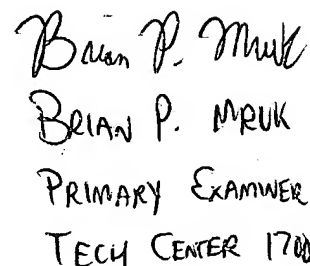 Brian P. Mruk
BRIAN P. MRUK
PRIMARY EXAMINER
TECH CENTER 1700